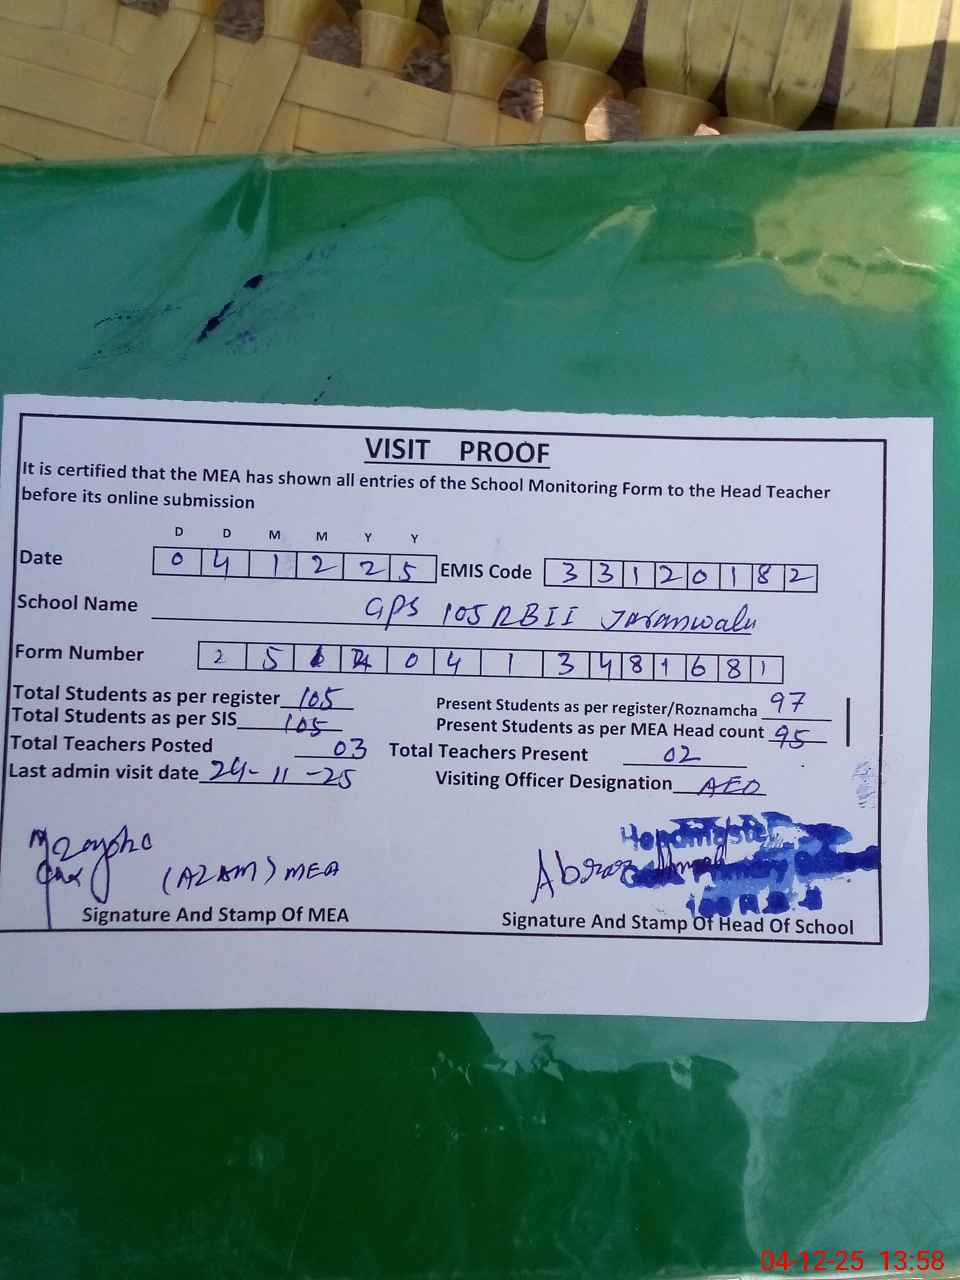 VISIT PROOF
It is certified that the MEA has shown all entries of the School Monitoring Form to the Head Teacher
before its online submission
D D M M Y Y
Date 0 4 1 2 2 5 EMIS Code 3 3 1 2 0 1 8 2
School Name GPS 105 RB II Jaranwala
Form Number 2 5 0 4 1 3 4 8 1 6 8 1
Total Students as per register 105 Present Students as per register/Roznamcha 97
Total Students as per SIS 105 Present Students as per MEA Head count 95
Total Teachers Posted 03 Total Teachers Present 02
Last admin visit date 24-11-25 Visiting Officer Designation AEO
Headmaster
Abrar
Primary
(AZAM) MEA
Signature And Stamp Of MEA Signature And Stamp Of Head Of School
04-12-25 13:58